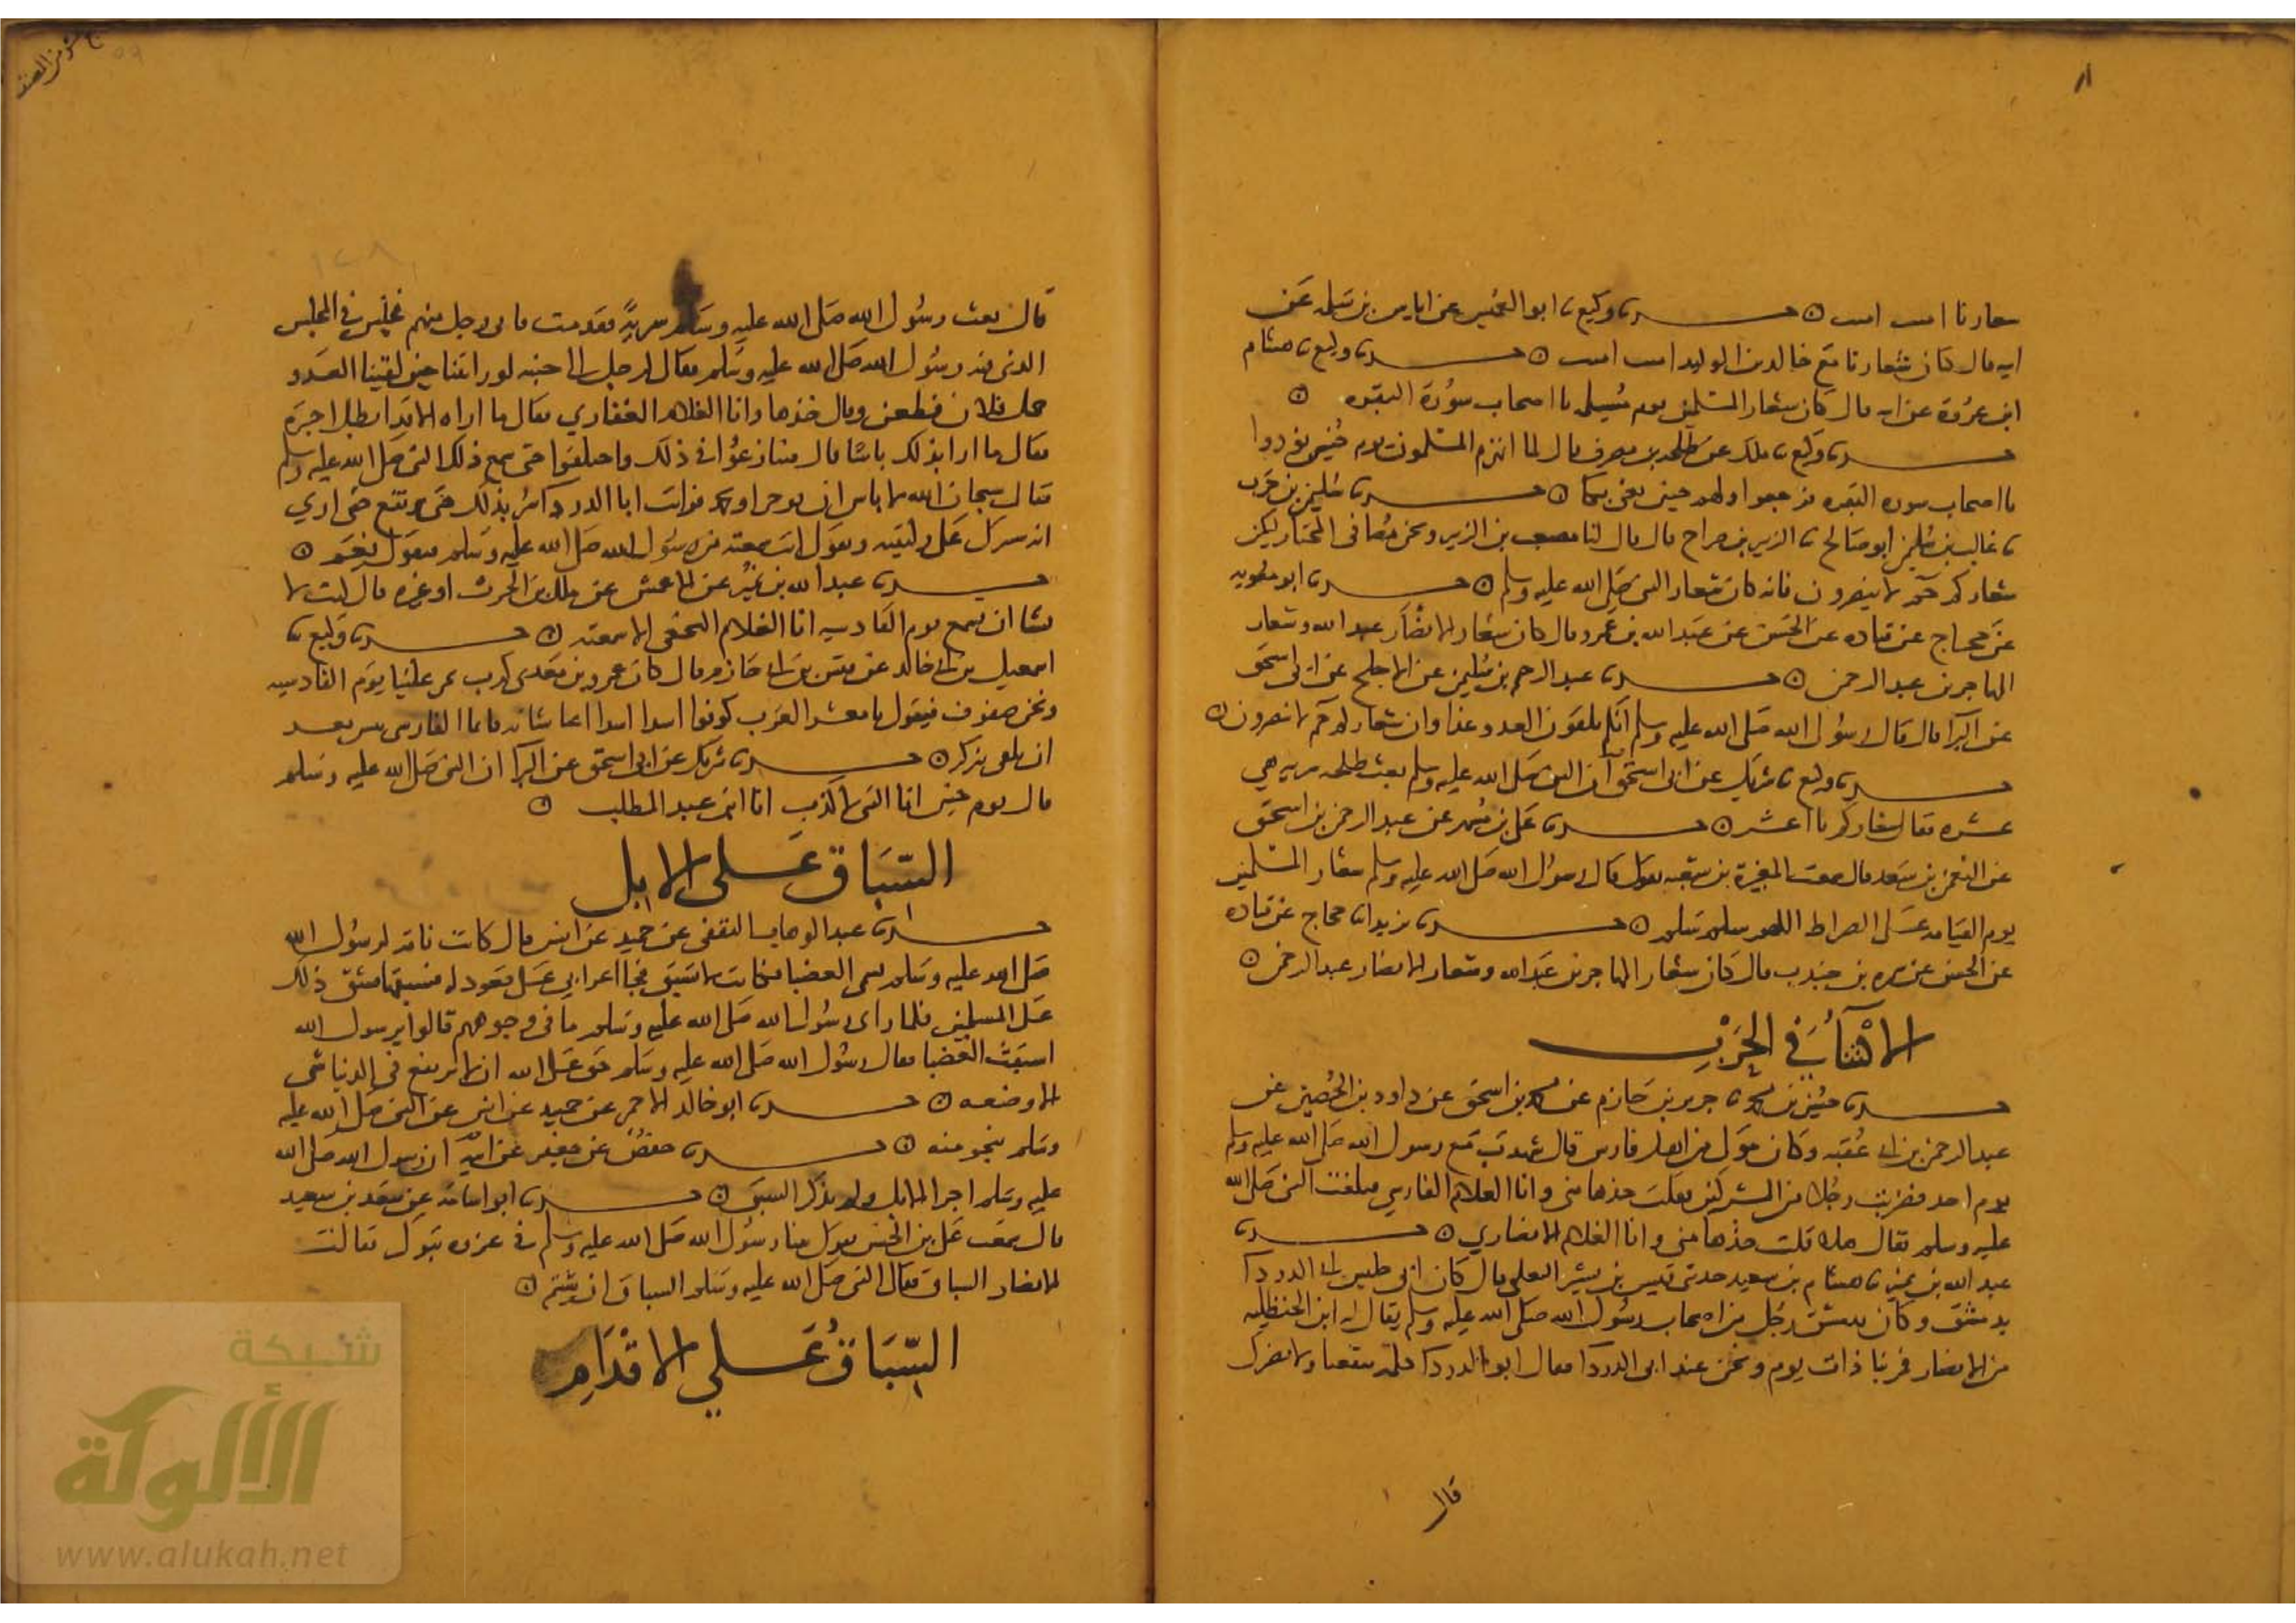 شعارنا امت امت ۞ حدثنا وكيع نا ابو العميس عن اياس بن سلمه عن
ابيه قال كان شعارنا مع خالد بن الوليد امت امت ۞ حدثنا وكيع نا هشام
ابن عروة عن ابيه قال كان شعار المسلمين يوم مسيلمه يا اصحاب سورة البقره ۞
حدثنا وكيع نا ملك عن طلحه بن مصرف قال لما انهزم المسلمون يوم حنين نودوا
يا اصحاب سوره البقره فرجعوا ولهم حنين يعني بكا ۞ حدثنا سليمن بن حرب
نا غالب بن سليمن ابو صالح نا الزبير بن صراح قال قال لنا مصعب بن الزبير ونحن مصافي المختار ليكن
شعاركم حم لا ينصرون فانه كان شعار النبي صلى الله عليه وسلم ۞ حدثنا ابو معويه
عن حجاج عن قتاده عن الحسن عن عبد الله بن عمرو قال كان شعار الانصار عبد الله وشعار
المهاجرين عبد الرحمن ۞ حدثنا عبد الرحيم بن سليمن عن الاجلح عن ابي اسحق
عن البرا قال قال رسول الله صلى الله عليه وسلم انكم تلقون العدو غدا وان شعاركم حم لا ينصرون ۞
حدثنا وكيع نا شريك عن ابي اسحق ان النبي صلى الله عليه وسلم بعث طلحه سريه هي
عشره فقال شعاركم يا عشر ۞ حدثنا علي بن مسهر عن عبد الرحمن بن اسحق
عن النعمن بن سعد قال سمعت المغيرة بن شعبه يقول قال رسول الله صلى الله عليه وسلم شعار المسلمين
يوم القيامه على الصراط اللهم سلم سلم ۞ حدثنا يزيد انا حجاج عن قتاده
عن الحسن عن سمره بن جندب قال كان شعار المهاجرين عبد الله وشعار الانصار عبد الرحمن ۞
الاكتناء في الحرب
حدثنا حسين بن محمد نا جرير بن حازم عن محمد بن اسحق عن داود بن الحصين عن
عبد الرحمن بن ابي عقبه وكان مولى من اهل فارس قال شهدت مع رسول الله صلى الله عليه وسلم
يوم احد فضربت رجلا من المشركين فقلت خذها مني وانا الغلام الفارسي فبلغت النبي صلى الله
عليه وسلم فقال هلا قلت خذها مني وانا الغلام الانصاري ۞ حدثنا
عبد الله بن نمير نا هشام بن سعيد حدثني قيس بن بشر التغلبي قال كان ابي جليس ابي الدردا
بدمشق وكان بدمشق رجل من اصحاب رسول الله صلى الله عليه وسلم يقال له ابن الحنظليه
من الانصار فمر بنا ذات يوم ونحن عند ابي الدردا فقال ابو الدردا كلمة تنفعنا ولا تضرك
قال
١٢٨
قال بعث رسول الله صلى الله عليه وسلم سرية فقدمت فاتى رجل منهم فجلس في المجلس
الذي فيه رسول الله صلى الله عليه وسلم فقال لرجل الى جنبه لو رايتنا حين لقينا العدو
حمل فلان فطعن وقال خذها وانا الغلام الغفاري فقال ما اراه الا قد ابطل اجره
فقال ما ارا بذلك باسا قال فتنازعوا في ذلك واختلفوا حتى سمع ذلك النبي صلى الله عليه وسلم
فقال سبحان الله لا باس ان يوجر او يحمد فرايت ابا الدردا سر بذلك حتى يرتفع حتى ارى
انه سيبرك على ركبتيه ويقول انت سمعته من رسول الله صلى الله عليه وسلم فيقول نعم ۞
حدثنا عبد الله بن نمير عن الاعمش عن ملك بن الحرث او غيره قال كنت لا
تشا ان تسمع يوم القادسيه انا الغلام النخعي الا سمعته ۞ حدثنا وكيع نا
اسمعيل بن ابي خالد عن قيس بن ابي حازم قال كان عمرو بن معدي كرب يمر علينا يوم القادسيه
ونحن صفوف فيقول يا معشر العرب كونوا اسدا اسدا اغنا شانه فانما الفارسي تيس بعد
ان يلقي نيزكه ۞ حدثنا شريك عن ابي اسحق عن البرا ان النبي صلى الله عليه وسلم
قال يوم حنين انا النبي لا كذب انا ابن عبد المطلب ۞
السباق على الابل
حدثنا عبد الوهاب الثقفي عن حميد عن انس قال كانت ناقة لرسول الله
صلى الله عليه وسلم تسمى العضبا فكانت لا تسبق فجا اعرابي على قعود له فسبقها فشق ذلك
على المسلمين فلما راى رسول الله صلى الله عليه وسلم ما في وجوههم قالوا يرسول الله
اسبقت العضبا فقال رسول الله صلى الله عليه وسلم حق على الله ان لا يرتفع في الدنيا شي
الا وضعه ۞ حدثنا ابو خالد الاحمر عن حميد عن انس عن النبي صلى الله عليه
وسلم بنحو منه ۞ حدثنا حفص عن جعفر عن ابيه ان رسول الله صلى الله
عليه وسلم اجرا الابل ولم يذكر السبق ۞ حدثنا ابو اسامة عن سعد بن سعيد
قال سمعت علي بن الحسين يقول بينا رسول الله صلى الله عليه وسلم في غزوه تبوك فقالت
الانصار السباق فقال النبي صلى الله عليه وسلم السباق ان شيتم ۞
السباق على الاقدام
شبكة
الألوكة
www.alukah.net